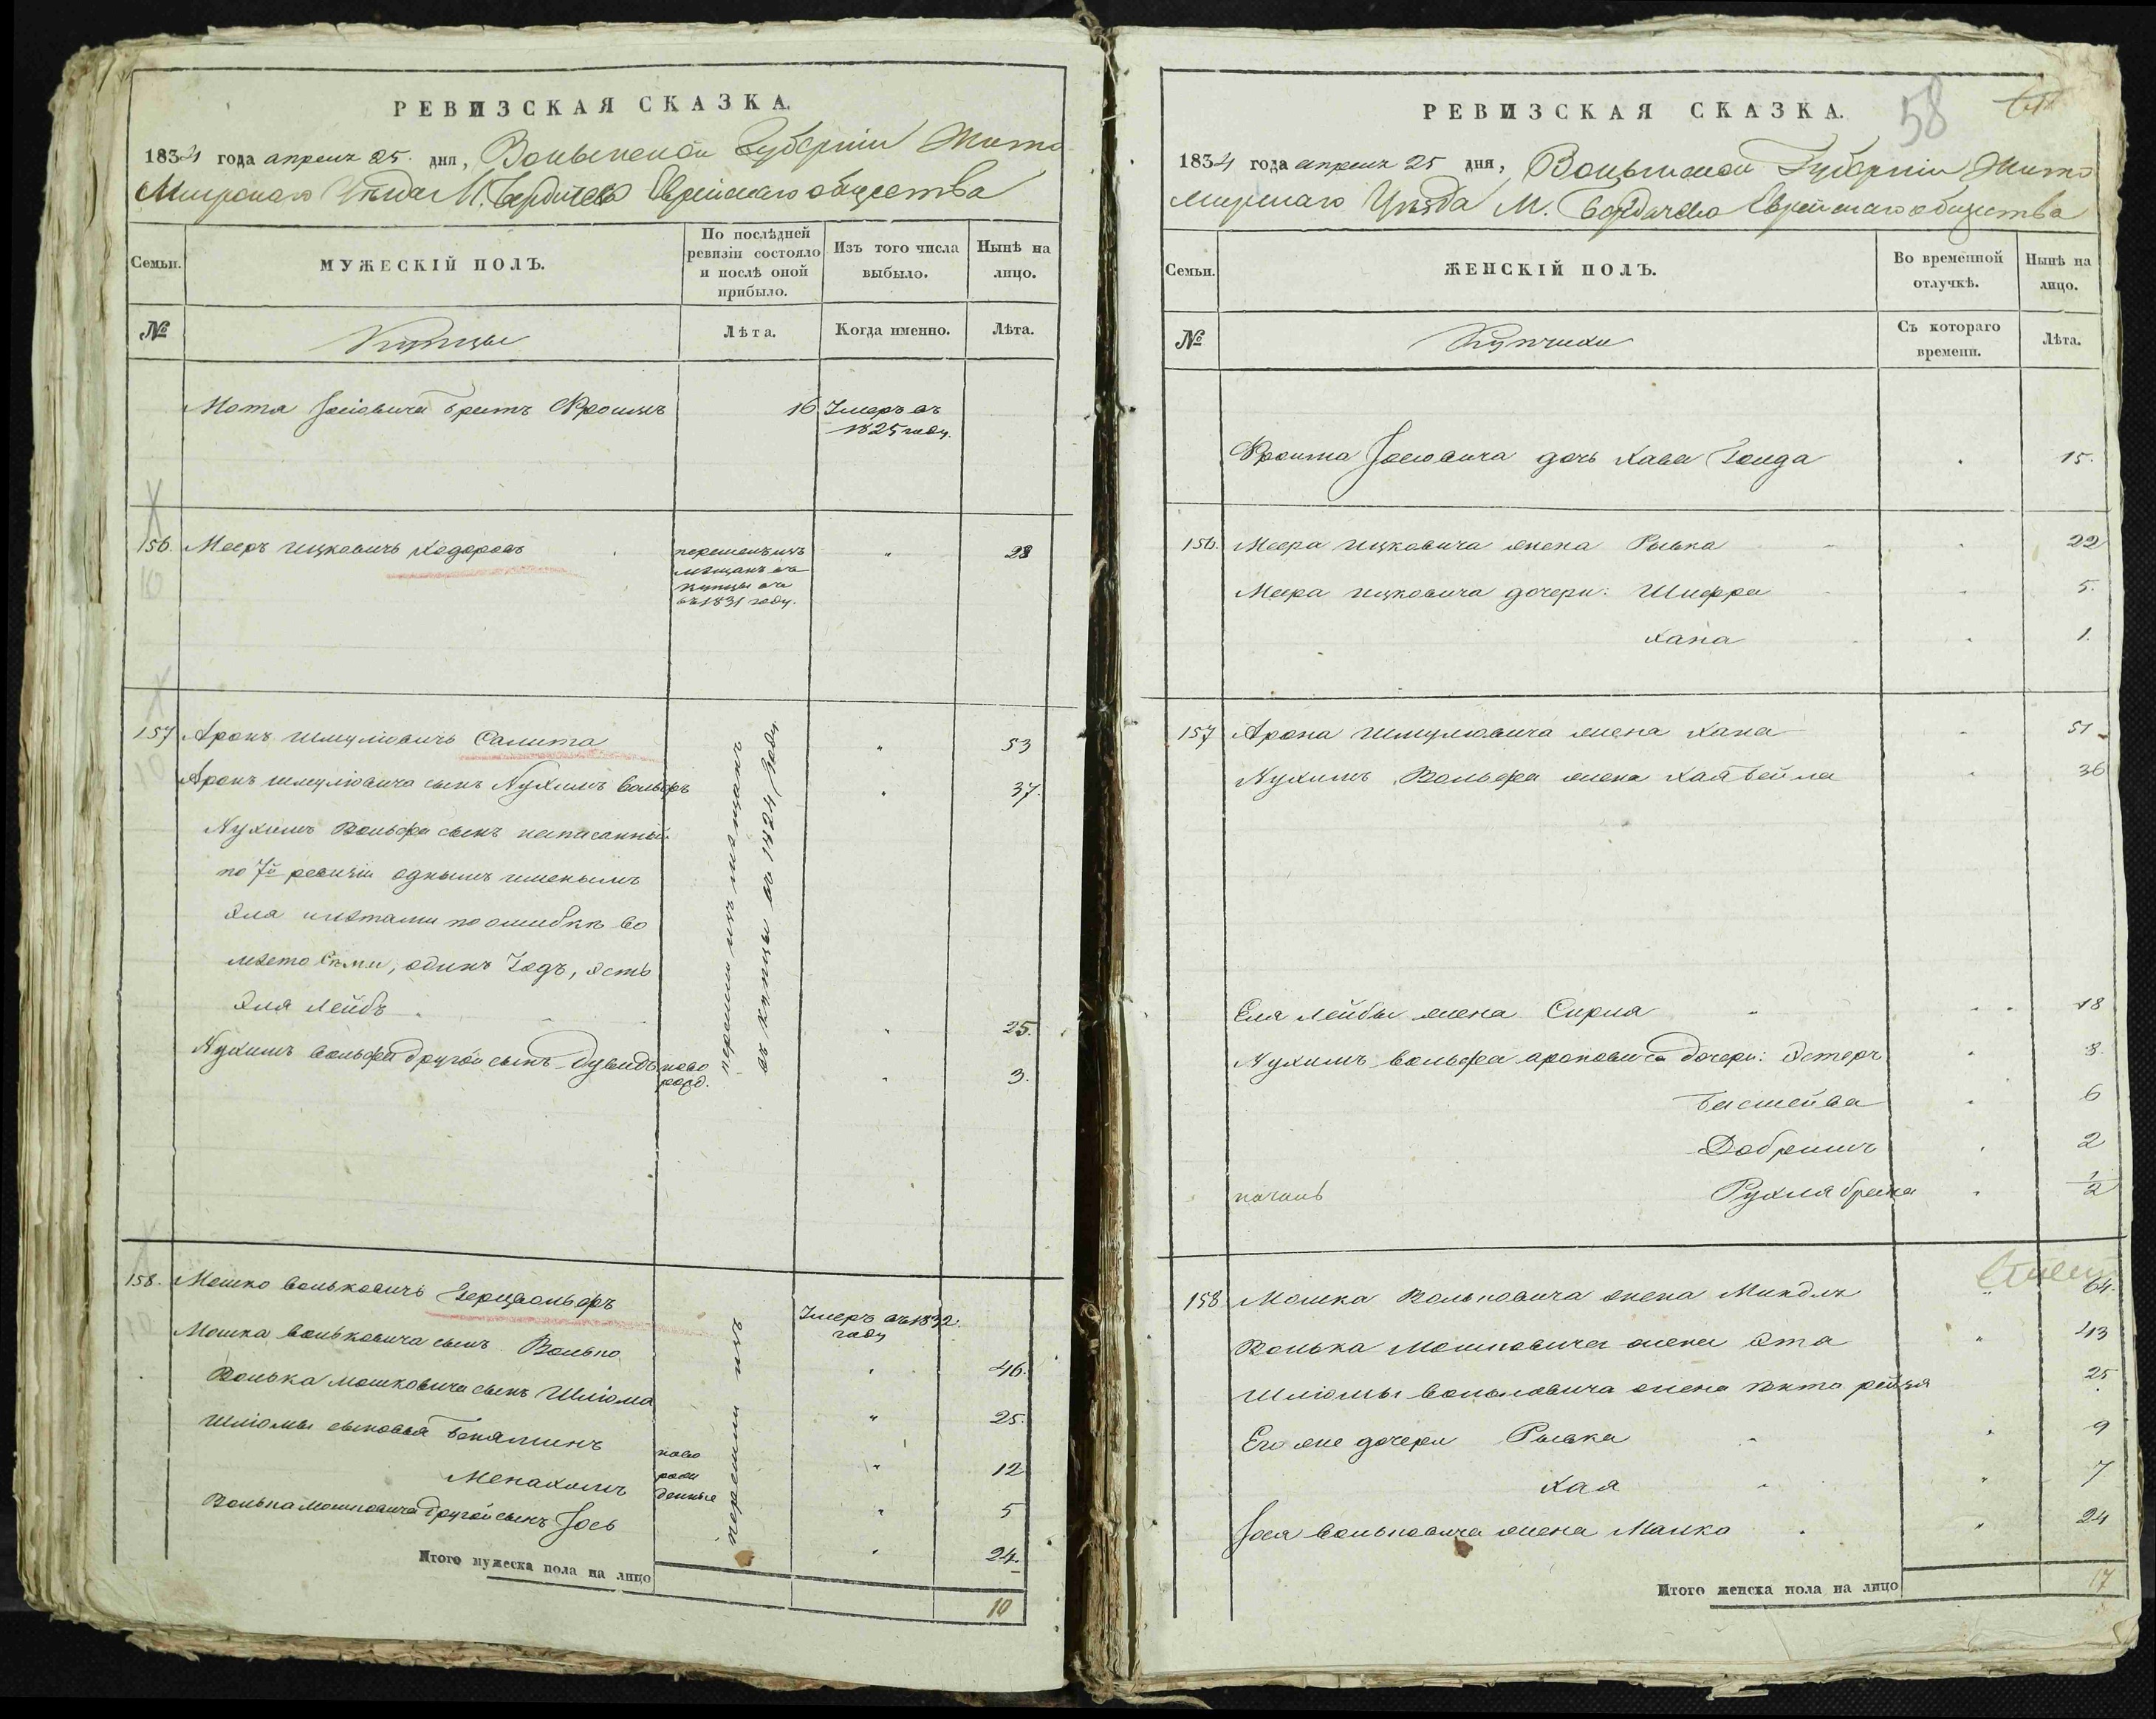 РЕВИЗСКАЯ СКАЗКА.
1834 года апреля 25 дня, Волынской Губерніи Жито
мирскаго Уѣзда М. Бердичева Еврейскаго общества
Семьи.
МУЖЕСКІЙ ПОЛЪ.
По послѣдней
ревизіи состояло
и послѣ оной
прибыло.
Изъ того числа
выбыло.
Нынѣ на
лицо.
№
Купцы
Лѣта.
Когда именно.
Лѣта.
Мота Іосіовича братъ Фроимъ 16 Умеръ въ
1825 году.
156. Мееръ Ицковичь Ходоровъ 28
перешелъ изъ
мѣщанъ въ
купцы въ
въ 1831 году.
10
157 Аронъ Шмуліовичъ Салита " 53
10
Аронъ Шмуліовича сынъ Нухимъ Вольфъ 37.
Нухимъ Вольфа сынъ написанный
по 7й ревизіи однымъ именымъ
Эля и лѣтами по ошибкѣ во
мѣсто Семи, одинъ Годъ, Эсть
Эля Лейбъ " 25.
Нухимъ Вольфа другой сынъ Дувидъ ново
рожд. " 3.
перешли изъ мѣщанъ
въ купцы въ 1824 году
158. Мошко Вольковичъ Герцвольфъ Умеръ въ 1832
году
10
Мошка Вольковича сынъ Волько " 46.
Волька Мошковича сынъ Шліома " 25.
Шліомы сыновья Беняминъ ново " 12
Менахимъ рож
денные " 5
Волька Мошковича другой сынъ Іось " 24.
перешли изъ
Итого мужеска пола на лицо 10
РЕВИЗСКАЯ СКАЗКА.
58
1834 года апреля 25 дня, Волынской Губерніи Жито
мирскаго Уѣзда М. Бердичева Еврейскаго общества
Семьи.
ЖЕНСКІЙ ПОЛЪ.
Во временной
отлучкѣ.
Нынѣ на
лицо.
№
Купчихи
Съ котораго
времени.
Лѣта.
Фроима Іосіовича дочь Хава Голда 15.
156. Меера Ицковича жена Рывка 22
Меера Ицковича дочери: Шифра 5.
Хана 1.
157 Арона Шмуліовича жена Хана 51
Нухимъ Вольфа жена Хая Бейла 36
Еля Лейбы жена Сирла 18
Нухимъ Вольфа Ароновича дочери: Эстеръ 8.
Басшейва 6
Добришъ 2
Рухля брана 1/2
158 Мошка Вольковича жена Миндль " 64.
Волька Мошковича жена Эта " 43
Шліомы Вольковича жена 25
Его же дочери Рывка " 9
Хая " 7
Іося Вольковича жена Малка " 24
Итого женска пола на лицо 17